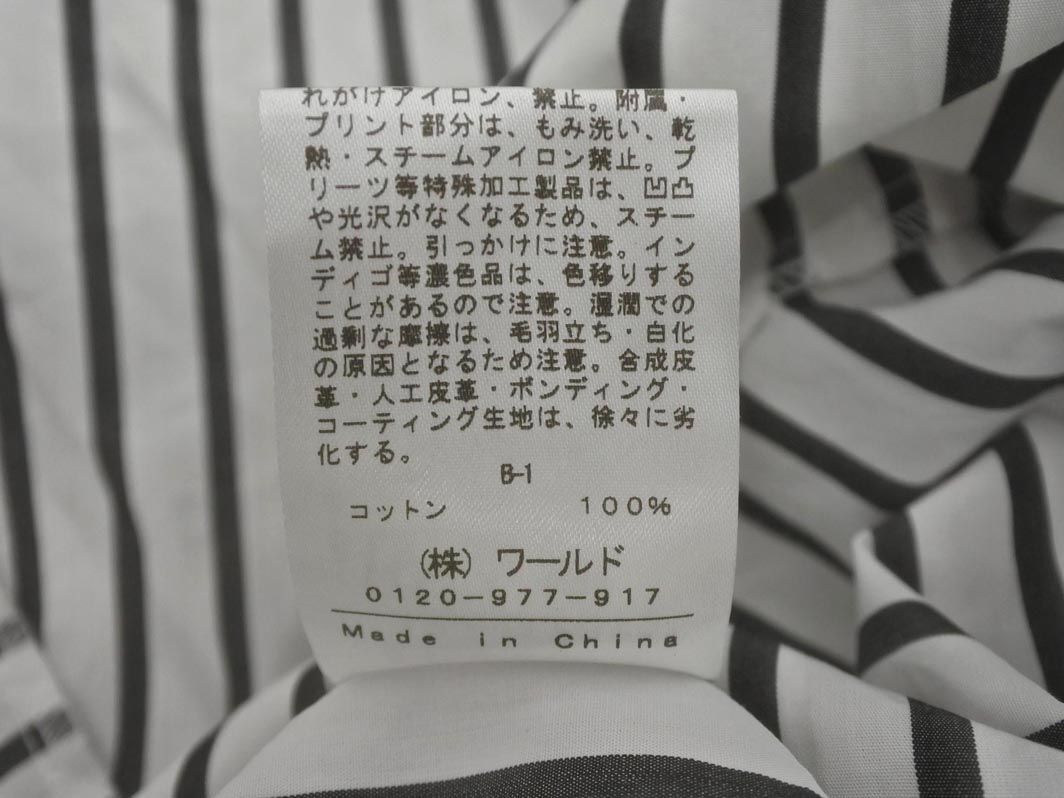 れがけアイロン、禁止。附属・
プリント部分は、もみ洗い、乾
熱・スチームアイロン禁止。プ
リーツ等特殊加工製品は、凹凸
や光沢がなくなるため、スチー
ム禁止。引っかけに注意。イン
ディゴ等濃色品は、色移りする
ことがあるので注意。湿潤での
過剰な摩擦は、毛羽立ち・白化
の原因となるため注意。合成皮
革・人工皮革・ボンディング・
コーティング生地は、徐々に劣
化する。
B-1
コットン 100%
(株) ワールド
0120-977-917
Made in China